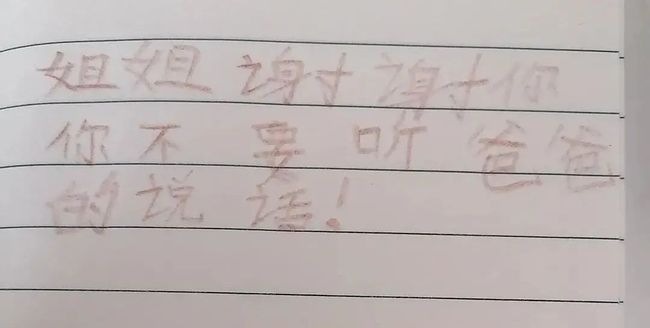 姐姐谢谢你
你不要听爸爸
的说话!